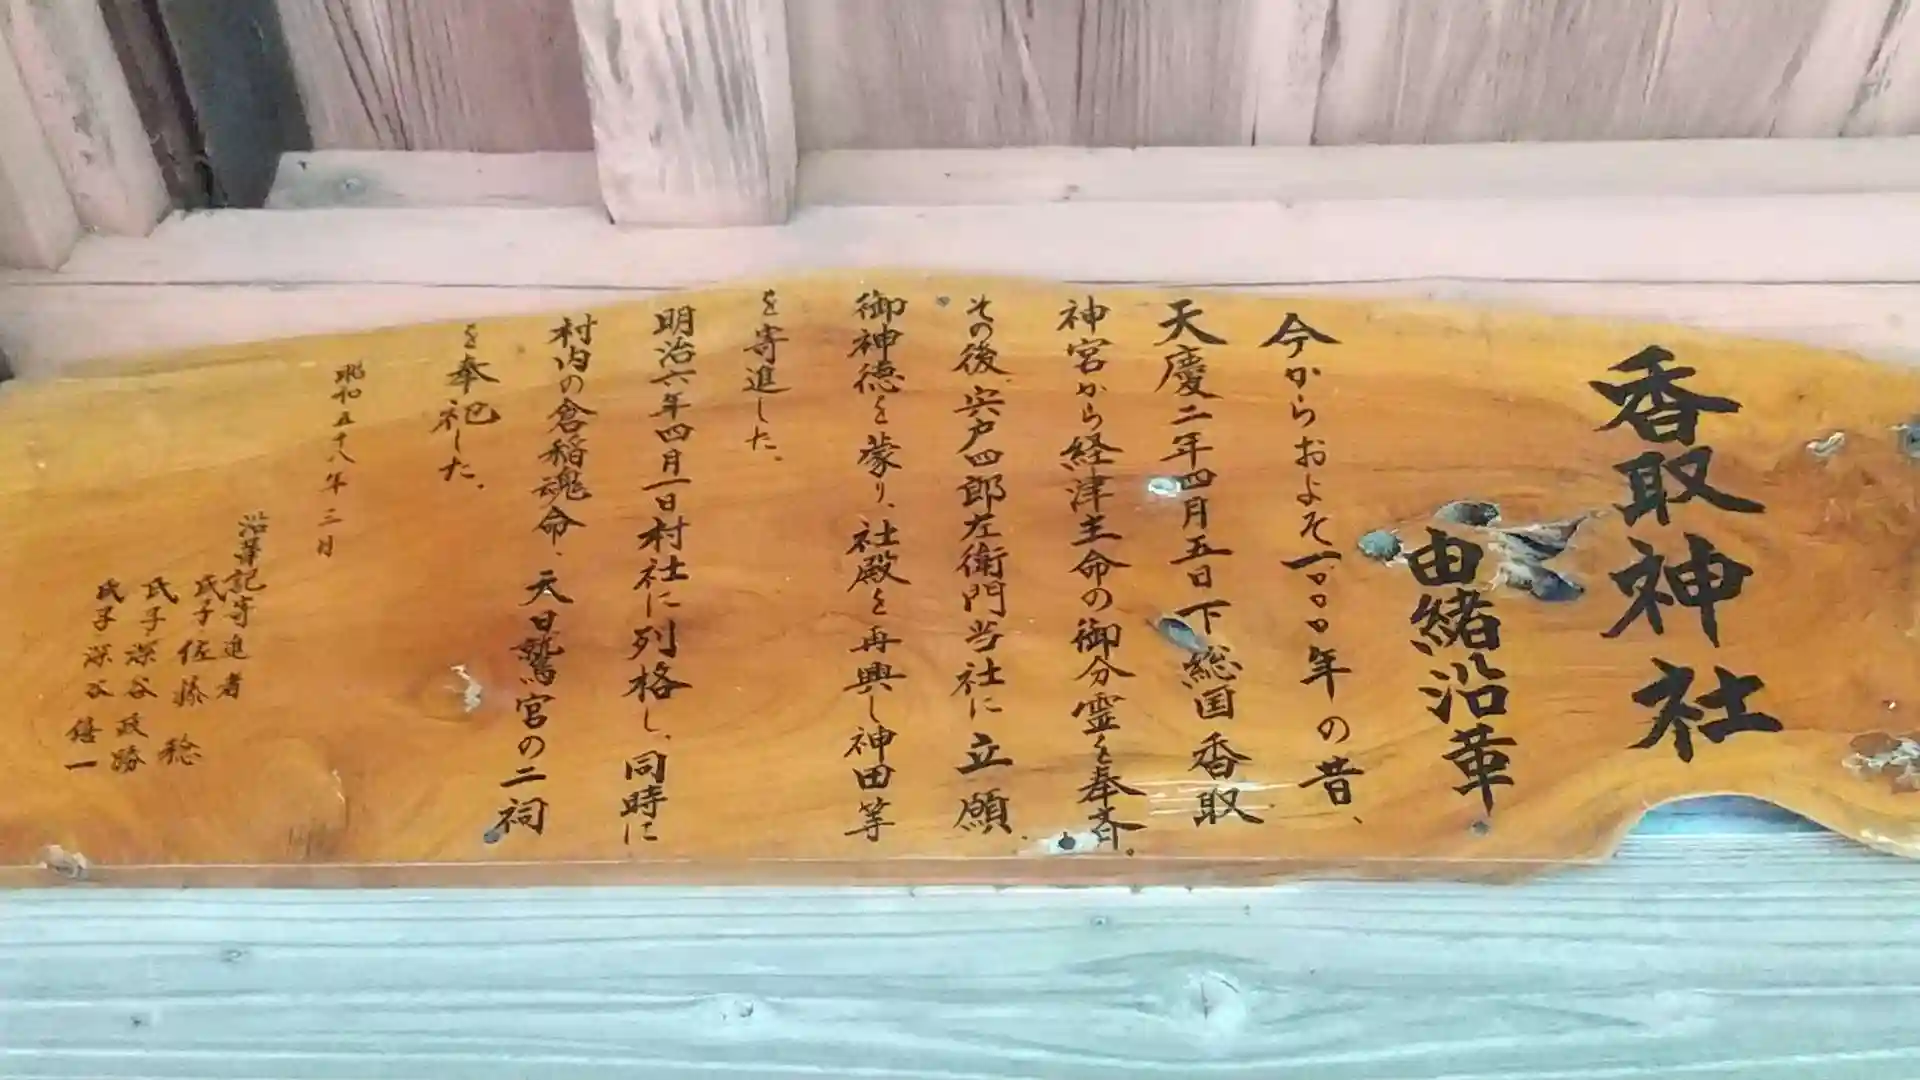 香取神社
由緒沿革
今からおよそ一〇〇〇年の昔、
天慶二年四月五日下総国香取
神宮から経津主命の御分霊を奉斉。
その後、宍戸四郎左衛門当社に立願、
御神徳を蒙り、社殿を再興し神田等
を寄進した。
明治六年四月一日村社に列格し、同時に
村内の倉稲魂命、天日鷲宮の二祠
を奉祀した。
昭和五十八年三月
沿革記寄進者
氏子佐藤 稔
氏子深谷政勝
氏子深谷 一